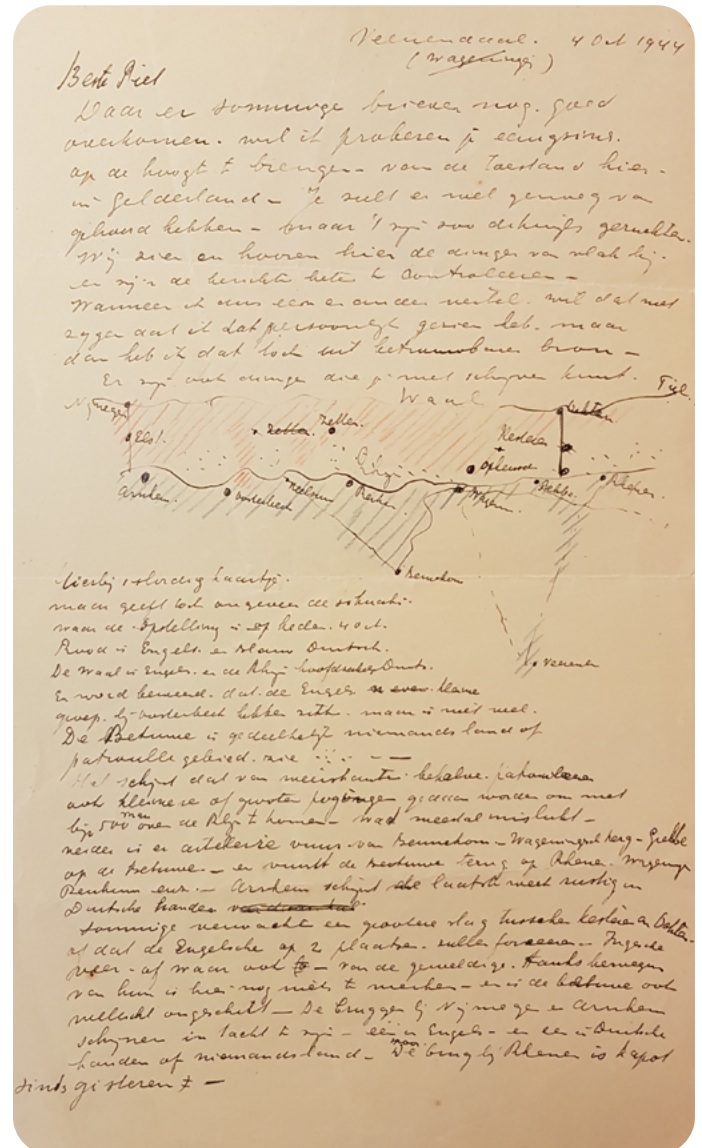 Veenendaal. 4 Oct 1944
(Wageningen)
Beste Piet
Daar er sommige brieven nog. goed
overkomen. wil ik proberen je eenigsins.
op de hoogt te brengen - van de toestand hier -
in Gelderland - Je zult er wel genoeg van
gehoord hebben - maar 't zijn zoo dikwijls geruchten.
Wij zien en hooren hier de dingen van vlak bij.
en zijn de berichten beter te controleeren -
Wanneer ik dus een en ander vertel. wil dat niet
zeggen dat ik dat persoonlijk gezien heb. maar
dan heb ik dat toch uit betrouwbare bron -
Er zijn ook dingen die je niet schrijven kunt.
Tiel.
Waal
Nijmegen
Ochten.
Elst.
Zetten.
Zetten.
Kesteren
Opheusden
Rhijn
Arnhem.
Oosterbeek
Heelsum
Renkum
Wagen.
Grebbe.
Rhenen.
Bennekom
Veenen
Hierbij slordig kaartje.
maar geeft toch ongeveer de situatie.
waar de opstelling is op heden. 4 Oct.
Rood is Engels. en blauw Duitsch.
De Waal is Engels. en de Rhijn hoofdzakelijk Duits.
Er word beweerd. dat de Engels een kleine
groep. bij Oosterbeek hebben zitten. maar is niet veel.
De Betuwe is gedeeltelijk niemandsland of
patrouille gebied. zie
Het schijnt dat van weerskanten behalve. patrouilleren
ook kleinere of grooten pogingen gedaan worden om met
bijv 500 man over de Rhijn te komen - wat meestal mislukt -
verder is er artillerie vuur van Bennekom - Wageningsche berg - Grebbe
op de Betuwe - en vuurt de Betuwe terug op Rhenen. Wageningen
Renkum enz. - Arnhem schijnt de laatste week rustig in
Duitsche handen
Sommige verwacht een grootere slag tusschen Kesteren en Ochten.
of dat de Engelsche op 2 plaatsen. zullen forceeren -
veer - of waar ook - van de geweldige. tanks bewegen
van hun is hier nog niets te merken - en is de betuwe ook
wellicht ongeschikt - De bruggen bij Nijmegen en Arnhem
schijnen in tacht te zijn - één in Engels - en een in Duitsche
handen of niemandsland - maar De brug bij Rhenen is kapot
sinds gisteren -